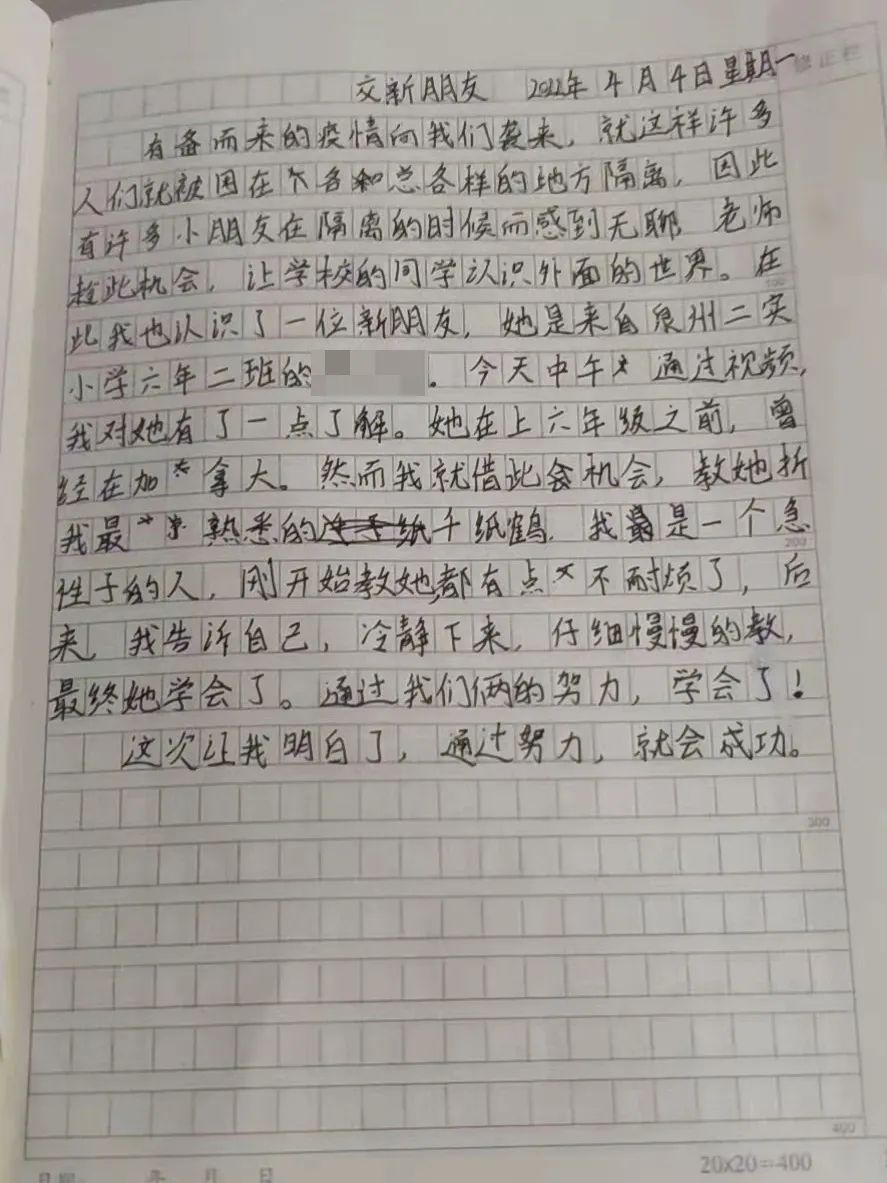 修正栏
交新朋友 2022年4月4日星期一
有备而来的疫情向我们袭来，就这样许多
人们就被困在个各和总各样的地方隔离，因此
有许多小朋友在隔离的时候而感到无聊 老师
趁此机会，让学校的同学认识外面的世界。在
100
此我也认识了一位新朋友，她是来自泉州二实
小学六年二班的 。今天中午 通过视频，
我对她有了一点了解。她在上六年级之前，曾
经在加 拿大。然而我就借此会机会，教她折
我最 熟悉的 千纸鹤，我最是一个急
200
性子的人，刚开始教她都有点 不耐烦了，后
来，我告诉自己，冷静下来，仔细慢慢的教，
最终她学会了。通过我们俩的努力，学会了！
这次让我明白了，通过努力，就会成功。
300
400
日期： 年 月 日
20x20=400